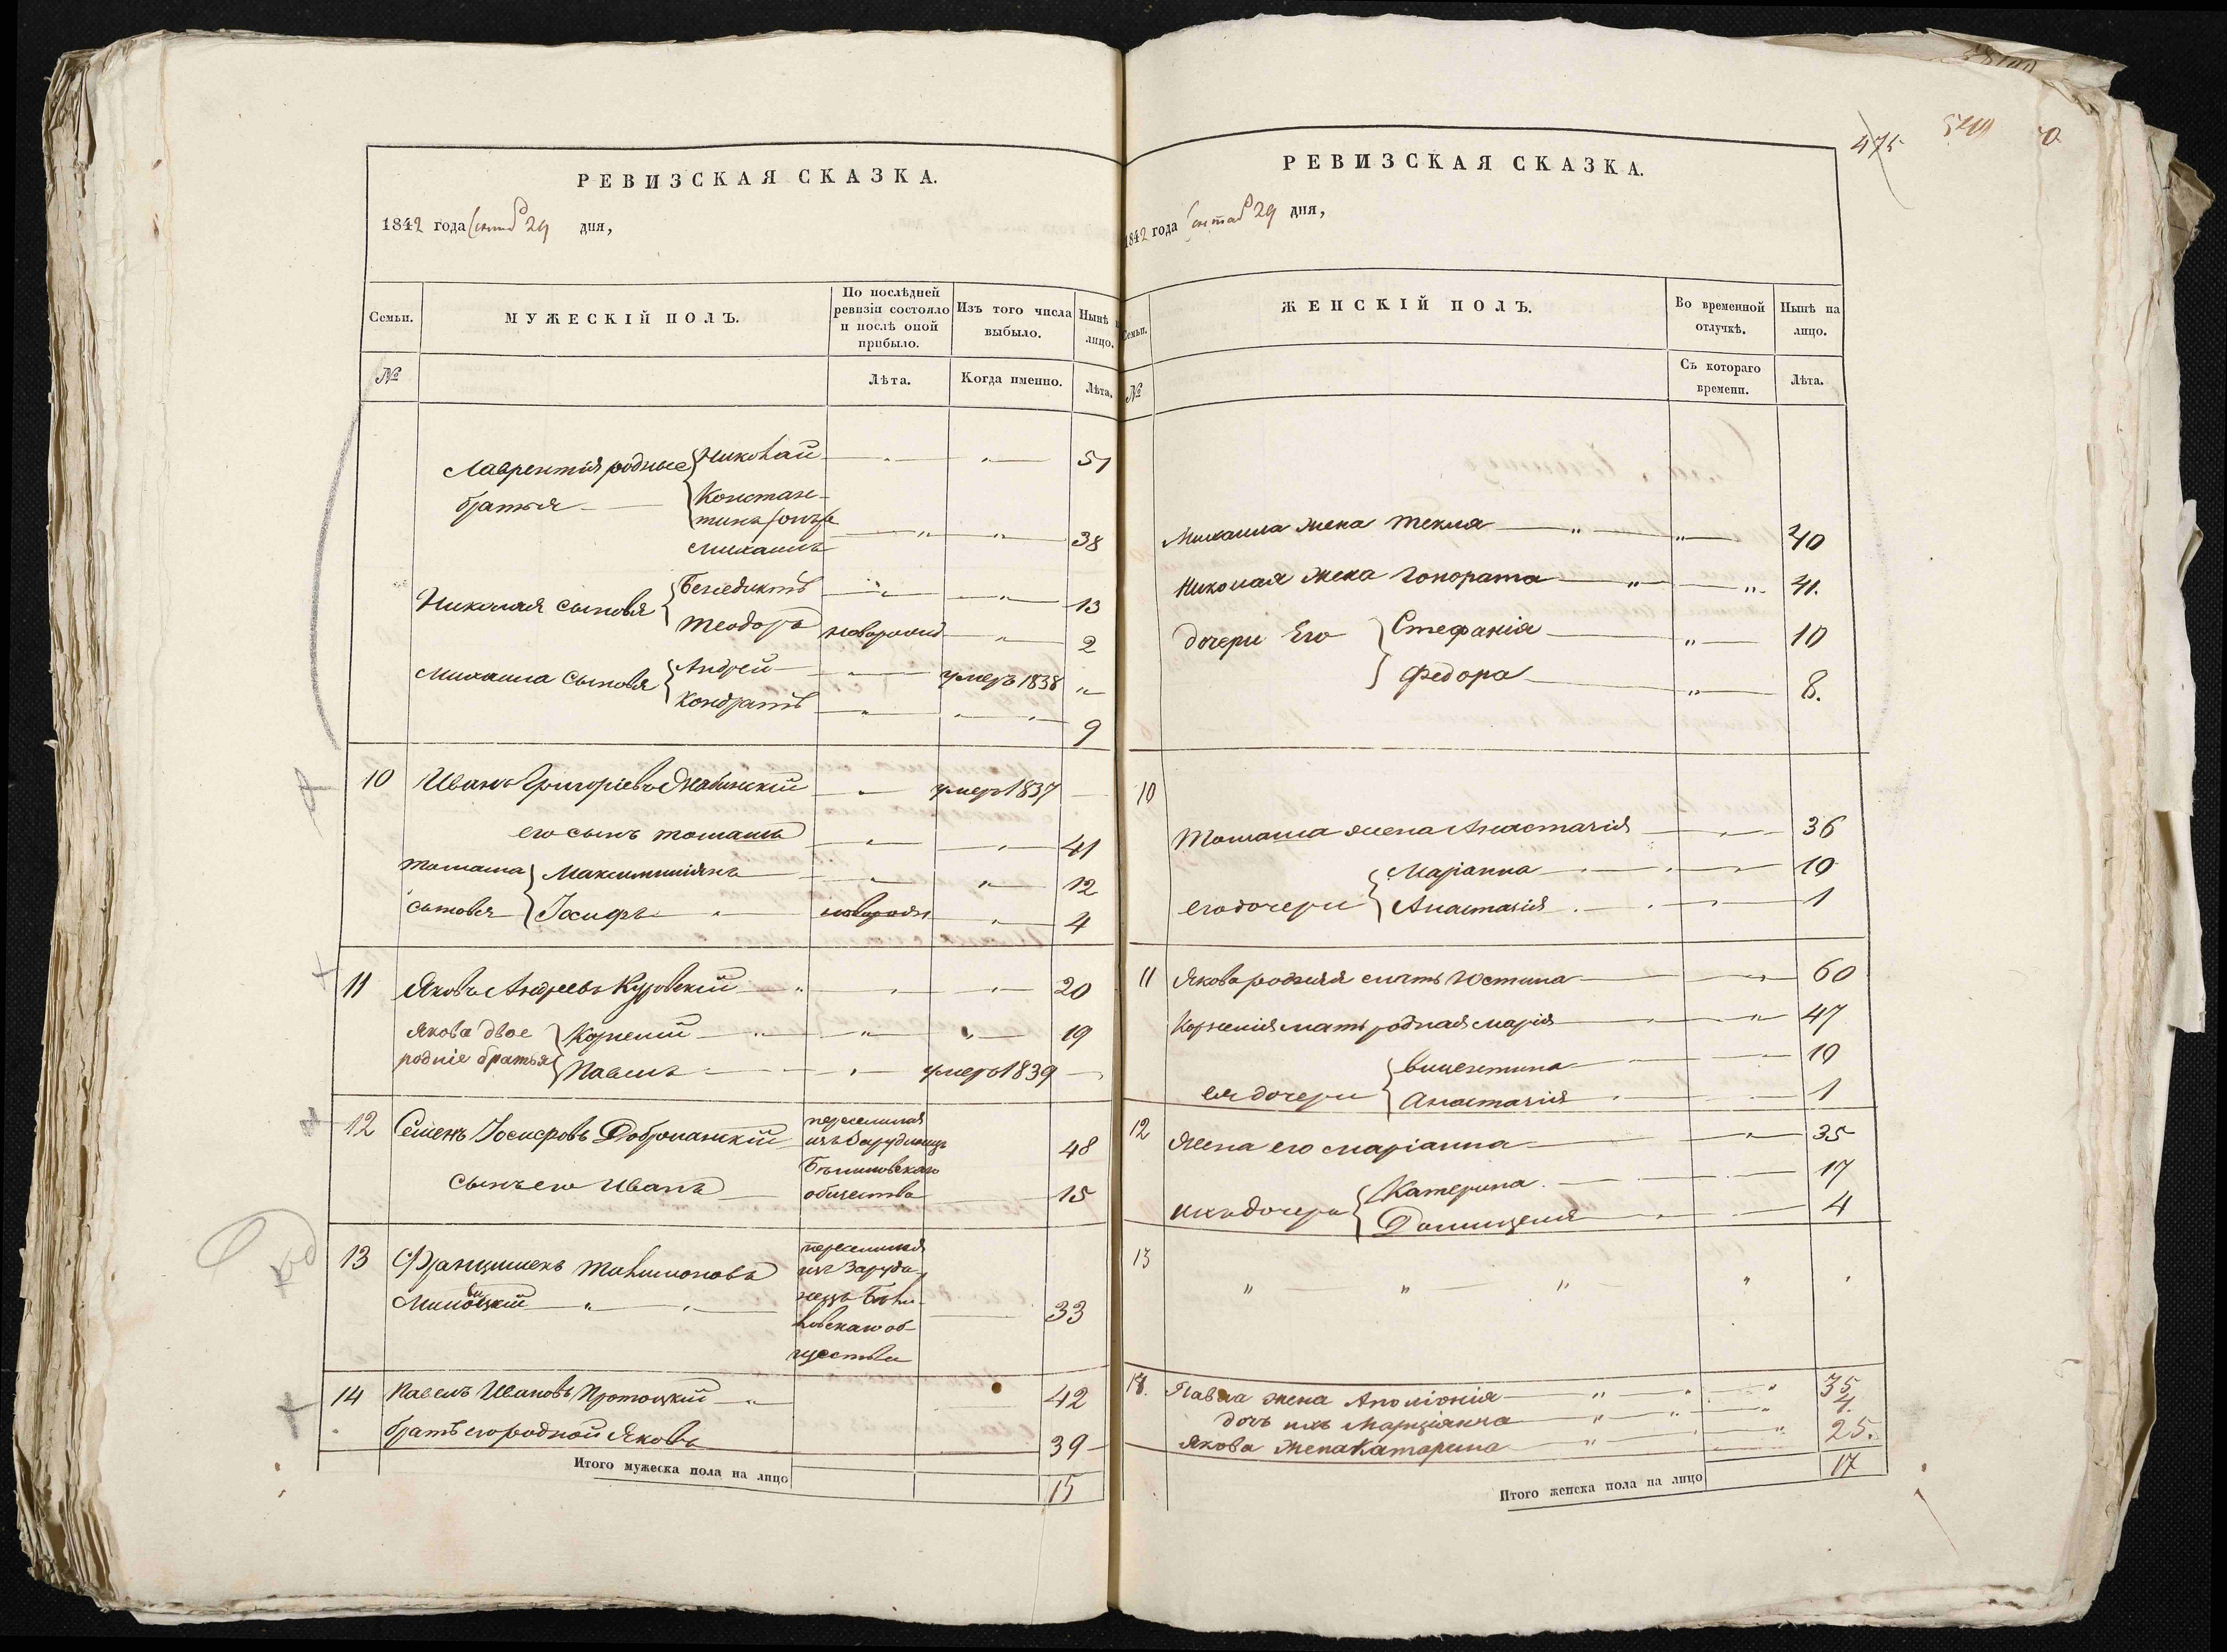 РЕВИЗСКАЯ СКАЗКА.
1842 года Сентяб 29 дня,
Семьи.
МУЖЕСКІЙ ПОЛЪ.
По послѣдней
ревизіи состояло
и послѣ оной
прибыло.
Изъ того числа
выбыло.
Нынѣ н
лицо.
№
Лѣта.
Когда именно.
Лѣта.
Лаврентія родные Николай 51
братья Констан-
тинъ онъ же
Михаилъ 38
Николая сыновья Бенедиктъ 13
Теодоръ новорожд 2
Михаила сыновья Андрей умеръ 1838
Кондратъ 9
10 Иванъ Григоріевъ умеръ 1837
его сынъ Томашъ 41
Томаша Максимиліянъ 12
сыновья Іосифъ новорожд 4
11 Яковъ Андреевъ Куровскій 20
Якова двое Корнелій 19
родніе братья Павелъ умеръ 1839
12 Семенъ Іосифовъ Добрианскій переселился
изъ Заруднецъ 48
сынъ его Иванъ
общества 15
13 Францишекъ переселился
изъ Заруд-
нецъ
33
общества
14 Павелъ Ивановъ Протоцкій 42
братъ его родной Яковъ 39
Итого мужеска пола на лицо 15
475
РЕВИЗСКАЯ СКАЗКА.
1842 года Сентяб 29 дня,
Семьи.
ЖЕНСКІЙ ПОЛЪ.
Во временной
отлучкѣ.
Нынѣ на
лицо.
№
Съ котораго
времени.
Лѣта.
Михаила жена Текля 40
Николая жена Гонората 41.
дочери Его Стефанія 10
Федора 8.
10
Томаша жена Анастасія 36
Маріанна 10
его дочери Анастасія 1
11 Якова родная мать Юстина 60
Корнелія мать родная Марія 47
Винцентина 10
ея дочери Анастасія 1
12 Жена его Маріанна 35
Катерина 17
ихъ дочери Домицеля 4
13
Павла жена Аполіонія 35
дочь ихъ Марціянна 4.
Якова жена Катарина 25.
Итого женска пола на лицо 17